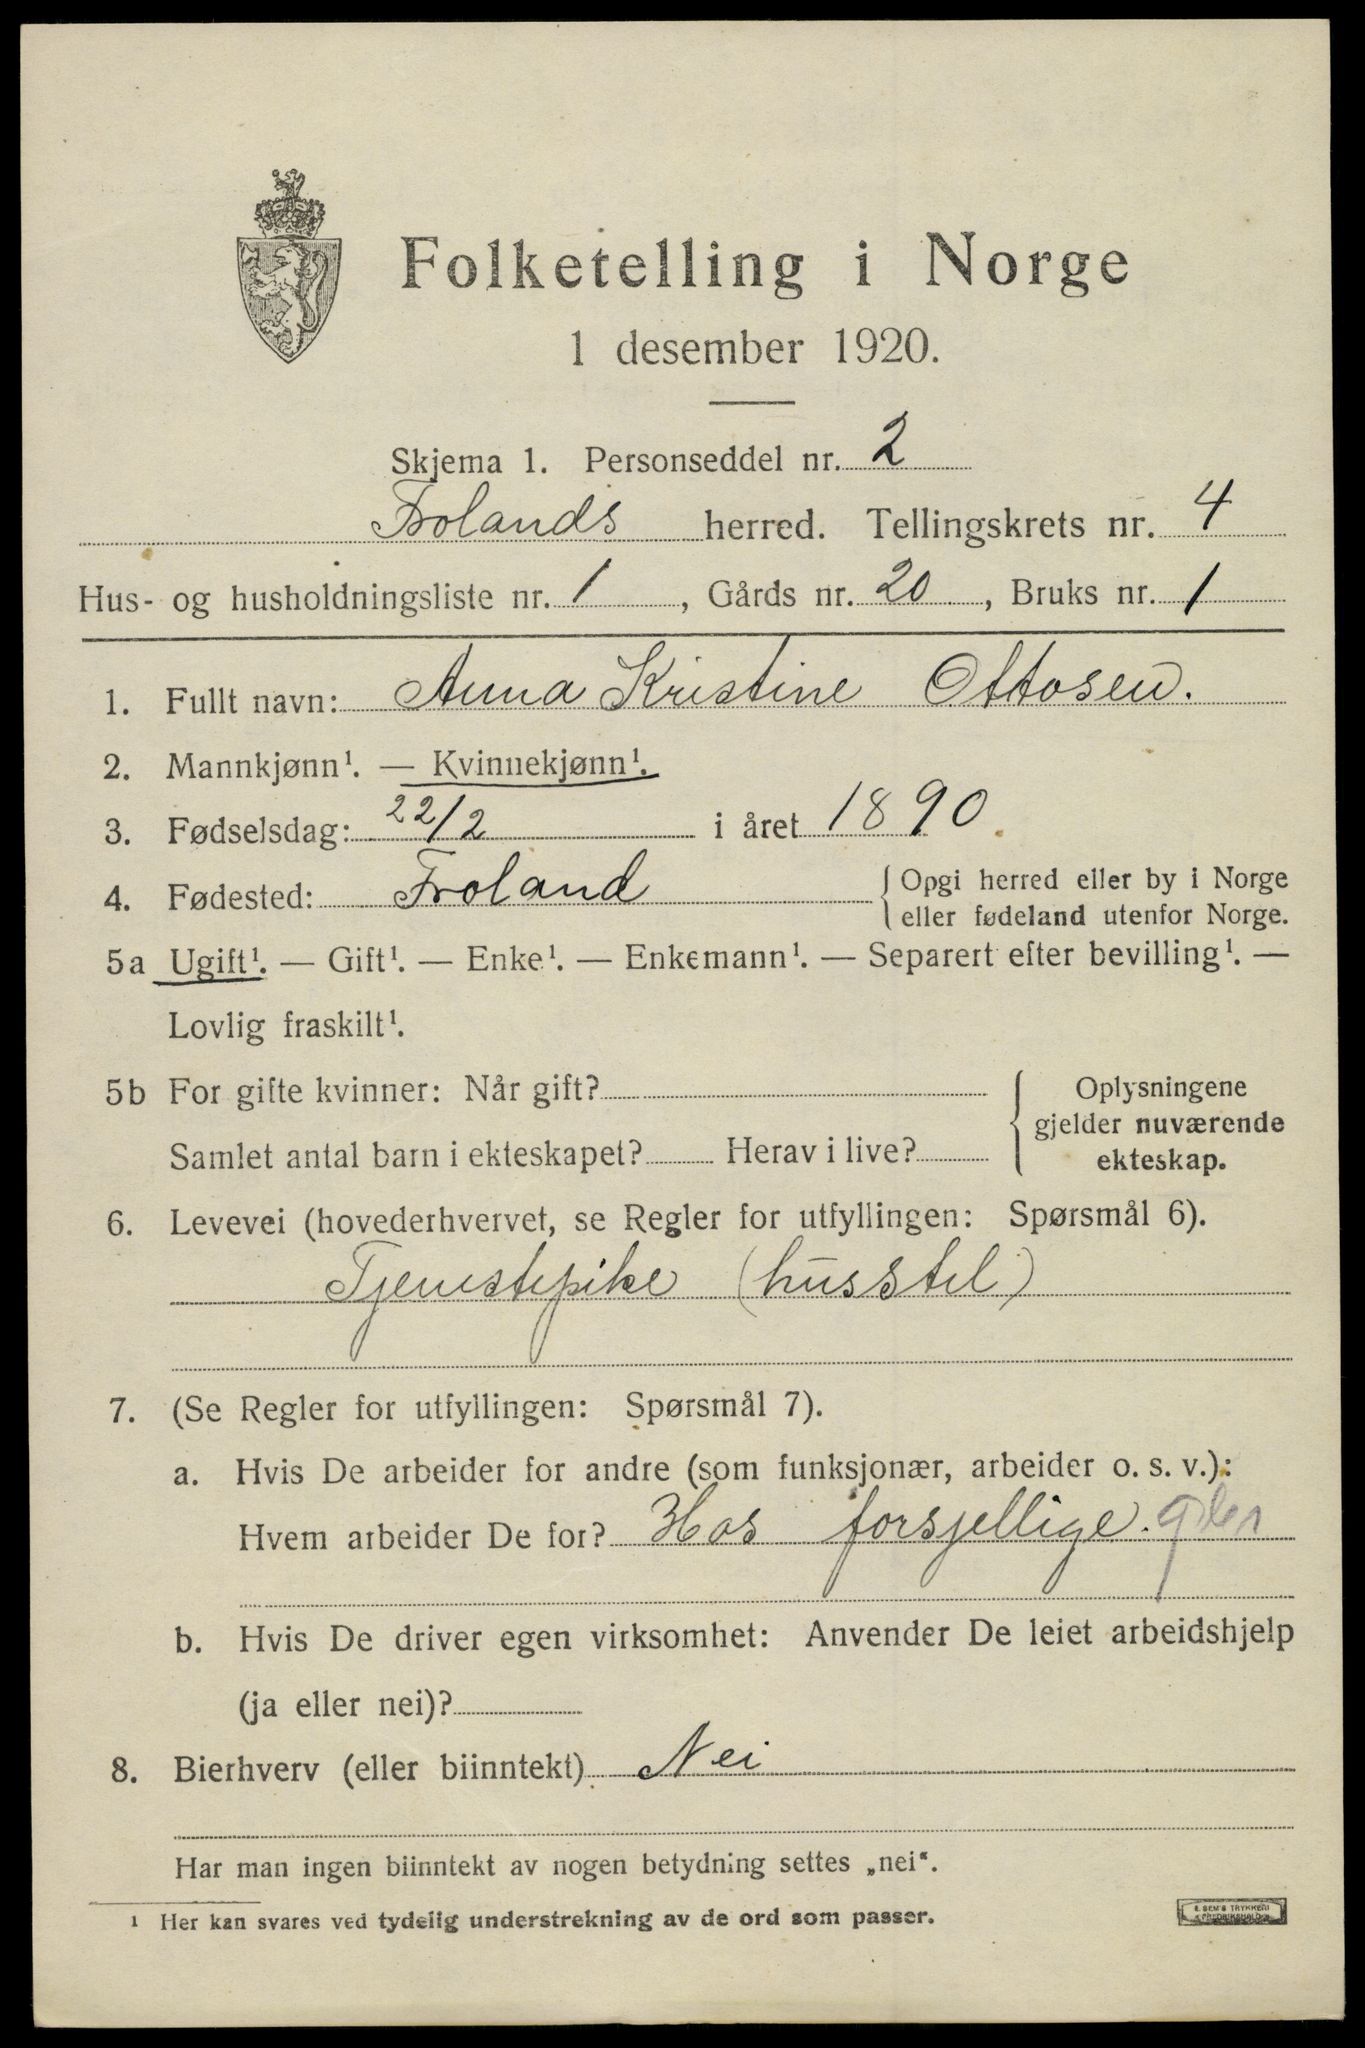 Folketelling i Norge
1 desember 1920.
Skjema 1. Personseddel nr. 2
Frolands herred. Tellingskrets nr. 4
Hus- og husholdningsliste nr. 1, Gårds nr. 20, Bruks nr. 1
1. Fullt navn: Anna Kristine Ottosen.
2. Mannkjønn¹. — Kvinnekjønn¹.
3. Fødselsdag: 22/2 i året 1890.
4. Fødested: Froland { Opgi herred eller by i Norge
eller fødeland utenfor Norge.
5a Ugift¹. — Gift¹. — Enke¹. — Enkemann¹. — Separert efter bevilling¹. —
Lovlig fraskilt¹.
5b For gifte kvinner: Når gift? { Oplysningene
gjelder nuværende
Samlet antal barn i ekteskapet? Herav i live?
ekteskap.
6. Levevei (hovederhvervet, se Regler for utfyllingen: Spørsmål 6).
Tjenestepike (husstel)
7. (Se Regler for utfyllingen: Spørsmål 7).
a. Hvis De arbeider for andre (som funksjonær, arbeider o. s. v.):
Hvem arbeider De for? Hos forsjellige.
b. Hvis De driver egen virksomhet: Anvender De leiet arbeidshjelp
(ja eller nei)?
8. Bierhverv (eller biinntekt) Nei
Har man ingen biinntekt av nogen betydning settes „nei“.
¹ Her kan svares ved tydelig understrekning av de ord som passer.
E. SEM'S TRYKKERI
FREDRIKSHALD